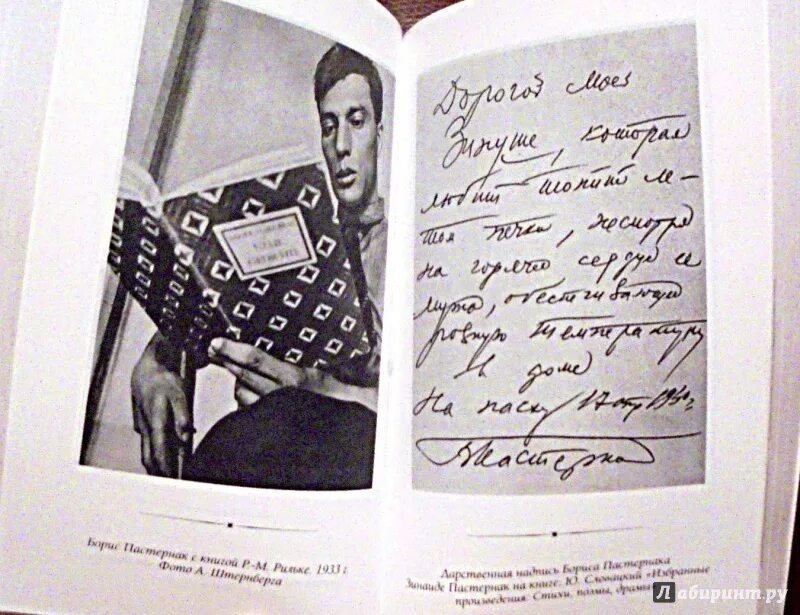 Борис Пастернак с книгой Р.-М. Рильке. 1933 г.
Фото А. Штернберга
Дорогой моей
Зинуше, которая
любит топить ле-
том печки, несмотря
на горячее сердце ее
мужа, обеспечивающее
ровную температуру
в доме
На пасху 17 апр
БПастернак
Дарственная надпись Бориса Пастернака
Зинаиде Пастернак на книге: Ю. Словацкий «Избранные
произведения. Стихи, поэмы,
Лабиринт.ру